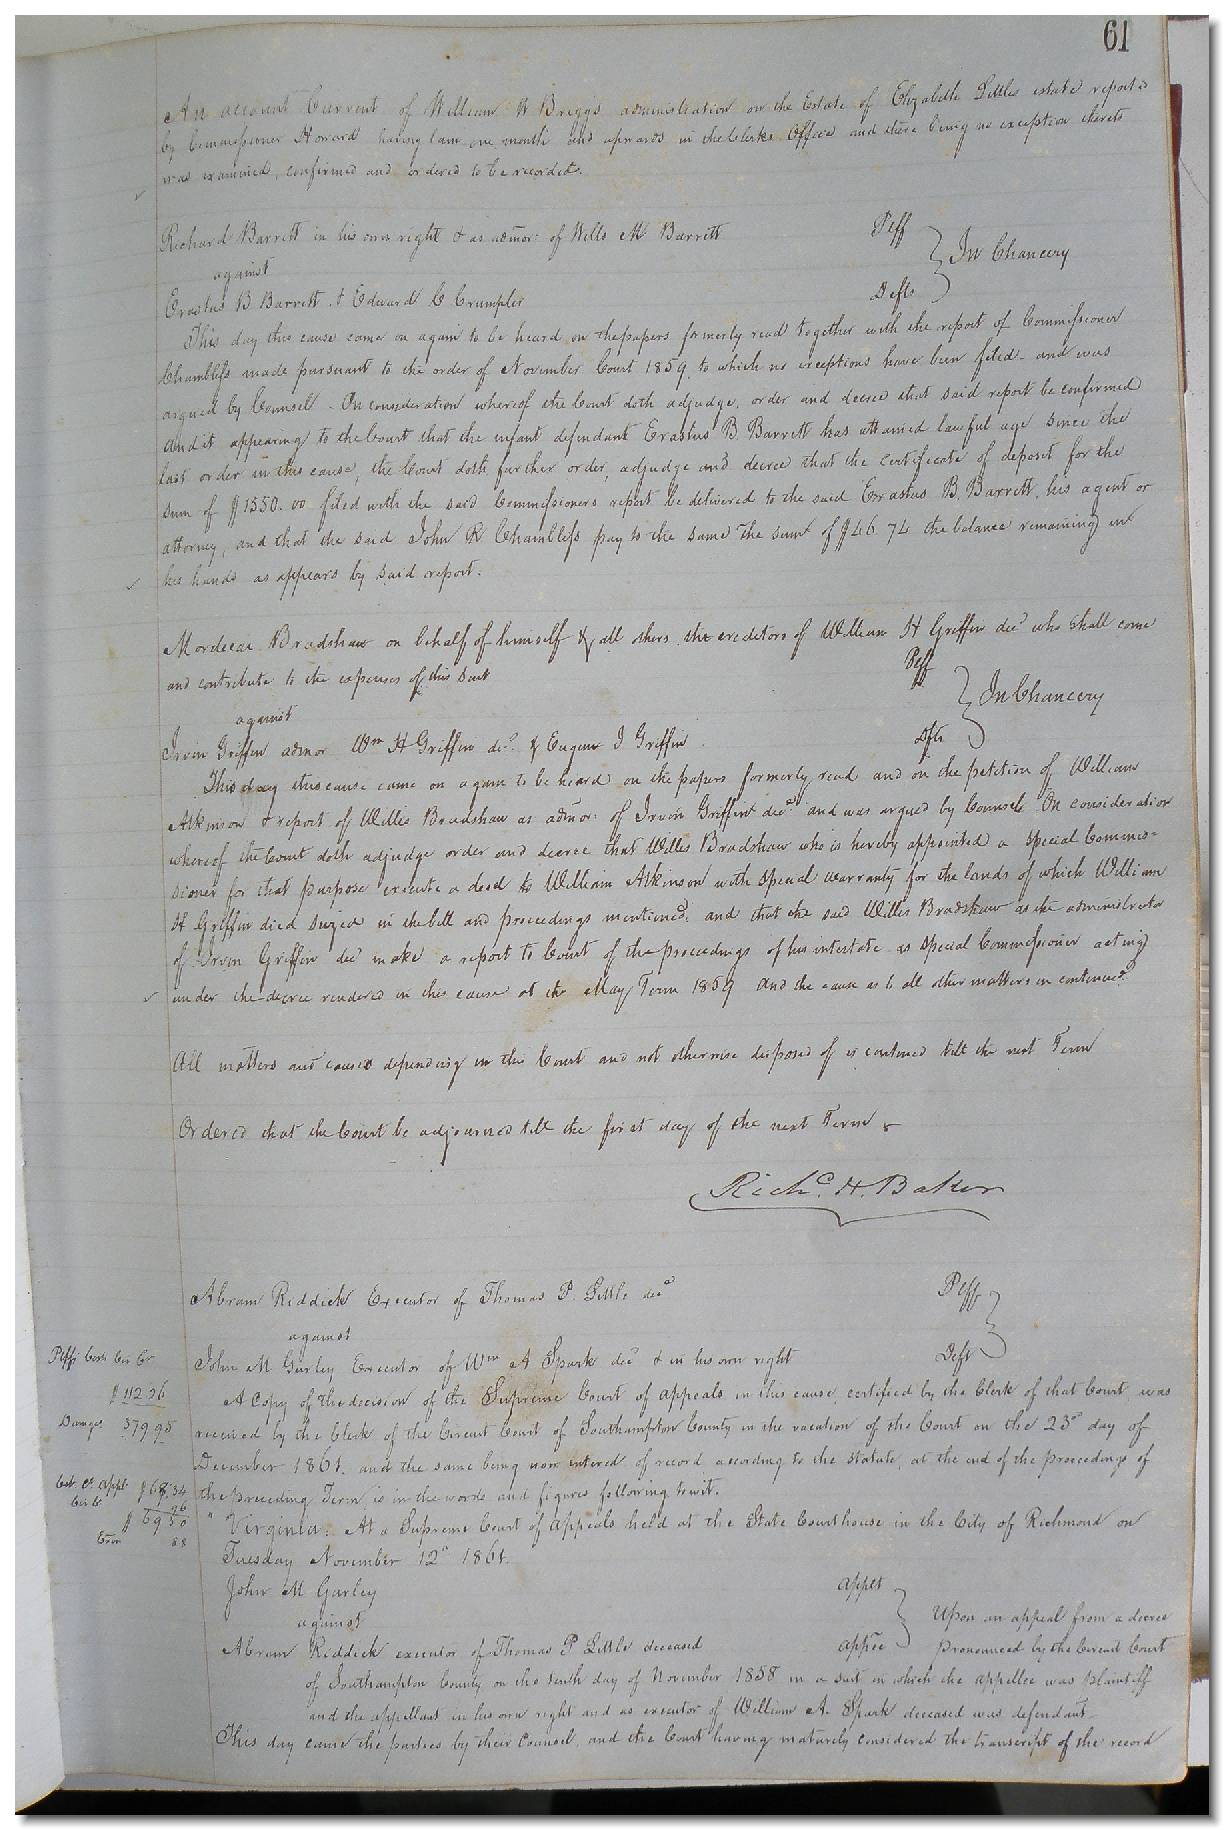 61
An account Current of William W Briggs administration on the Estate of Elizabeth Littles estate reported
by Commissioner Howard having lain one month and upwards in the Clerks Office and there being no exception thereto
was examined, confirmed and ordered to be recorded.
Richard Barrett in his own right & as admor: of Wells M Barrett Plff
against In Chancery
Erastus B Barrett & Edward C Crumpler Defts
This day this cause came on again to be heard on the papers formerly read together with the report of Commissioner
Chambliss made pursuant to the order of November Court 1859, to which no exceptions have been filed and was
argued by Counsel. On consideration whereof the Court doth adjudge, order and decree that said report be confirmed
And it appearing to the Court that the infant defendant Erastus B. Barrett has attained lawful age since the
last order in this cause, the Court doth further order, adjudge and decree that the certificate of deposit for the
sum of $1550.00 filed with the said Commissioners report be delivered to the said Erastus B. Barrett, his agent or
attorney, and that the said John R Chambliss pay to the same the sum of $46 74 the balance remaining in
his hands as appears by said report.
Mordecai Bradshaw on behalf of himself & all others the creditors of William H Griffin decd who shall come
and contribute to the expenses of this suit Plff
against In Chancery
Irvin Griffin admor Wm H Griffin decd & Eugene I Griffin Dfts
This day this cause came on again to be heard on the papers formerly read and on the petition of William
Atkinson & report of Willis Bradshaw as admor: of Irvin Griffin decd and was argued by Counsel On consideration
whereof the Court doth adjudge order and decree that Willis Bradshaw who is hereby appointed a Special Commis=
sioner for that purpose execute a deed to William Atkinson with special warranty for the lands of which William
H Griffin died seized in the bill and proceedings mentioned, and that the said Willis Bradshaw as the administrator
of Irvin Griffin decd make a report to Court of the proceedings of his intestate as Special Commissioner acting
under the decree rendered in this cause at the May Term 1859 And the cause as to all other matters is continued
All matters and causes depending in this Court and not otherwise disposed of is continued till the next Term
Ordered that the Court be adjourned till the first day of the next Term
Richd. H. Baker
Abram Riddick Executor of Thomas P. Little decd Plff
against
John M Gurley Executor of Wm A Spark decd & in his own right Deft
Plffs Costs Cir Ct
$112 36
Damages 379.95
A Copy of the decision of the Supreme Court of Appeals in this cause, certified by the Clerk of that Court was
received by the Clerk of the Circuit Court of Southampton County in the vacation of the Court on the 23d day of
December 1861. and the same being now entered of record according to the statute, at the end of the proceedings of
the preceding Term, is in the words and figures following to wit.
Cost Ct. Appls $68.34
$69 50
"Virginia: At a Supreme Court of Appeals held at the State Courthouse in the City of Richmond on
Tuesday November 12th 1861.
John M Gurley Applt
against
Abram Riddick executor of Thomas P Little deceased Appee
Upon an appeal from a decree
pronounced by the Circuit Court
of Southampton County on the tenth day of November 1858 in a suit in which the appellee was plaintiff
and the appellant in his own right and as executor of William A. Spark deceased was defendant.
This day came the parties by their Counsel, and the Court having maturely considered the transcript of the record